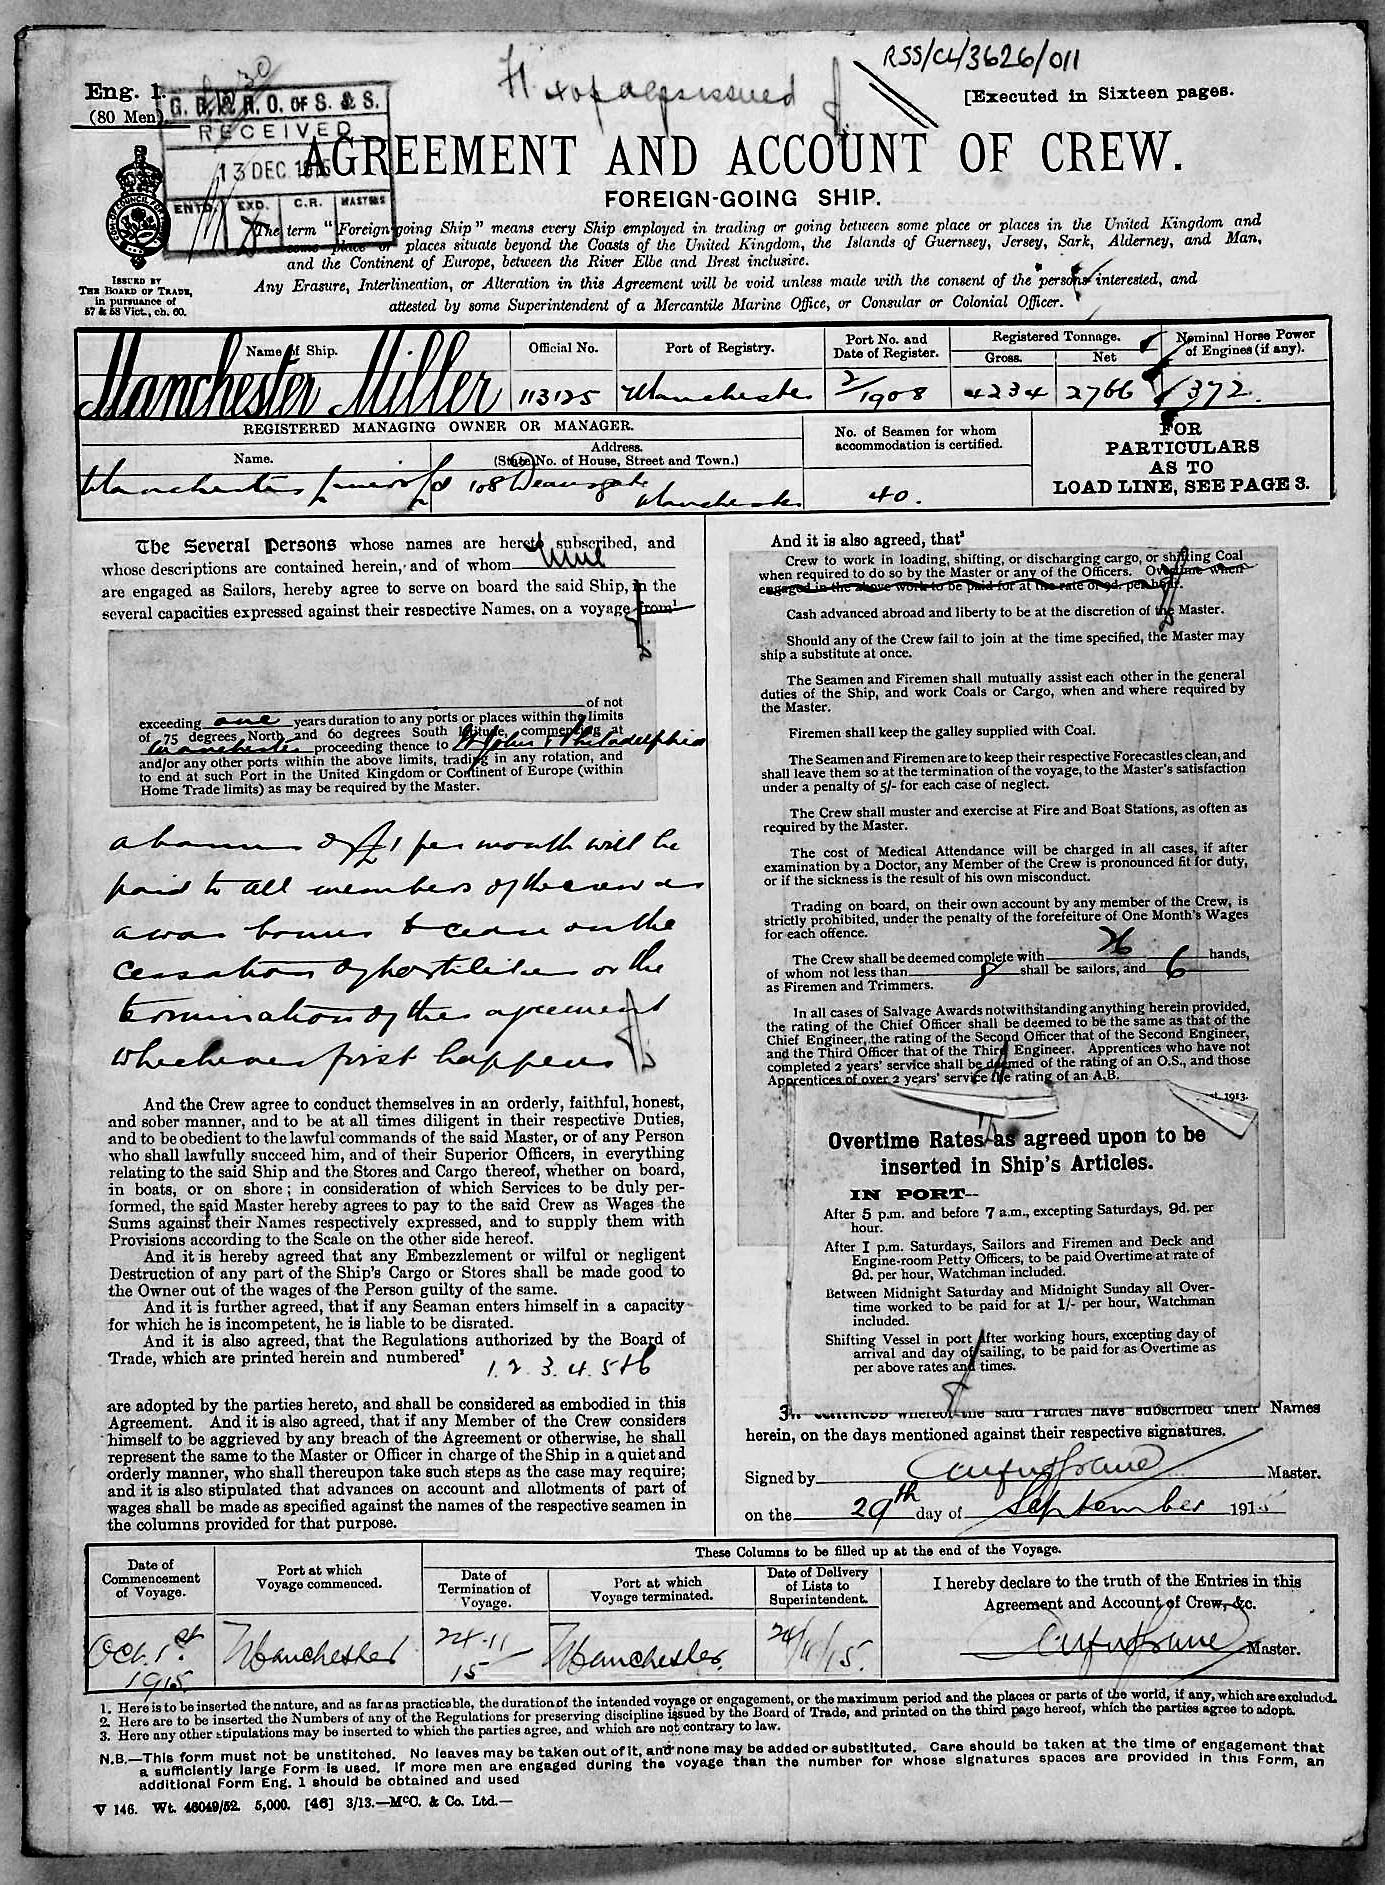 RSS/CL/3626/011
Eng. 1.
(80 Men)
[Executed in Sixteen pages.
G. R. & R. O. OF S. & S.
RECEIVED
13 DEC. 1915
ENTD. EXD. C.R. MASTERS
AGREEMENT AND ACCOUNT OF CREW.
FOREIGN-GOING SHIP.
ISSUED BY
THE BOARD OF TRADE,
in pursuance of
57 & 58 Vict., ch. 60.
The term "Foreign-going Ship" means every Ship employed in trading or going between some place or places in the United Kingdom and
some place or places situate beyond the Coasts of the United Kingdom, the Islands of Guernsey, Jersey, Sark, Alderney, and Man,
and the Continent of Europe, between the River Elbe and Brest inclusive.
Any Erasure, Interlineation, or Alteration in this Agreement will be void unless made with the consent of the persons interested, and
attested by some Superintendent of a Mercantile Marine Office, or Consular or Colonial Officer.
Name of Ship. Official No. Port of Registry. Port No. and Date of Register. Registered Tonnage. Gross. Net Nominal Horse Power of Engines (if any).
Manchester Miller 113125 Manchester 2/1908 4234 2766 372.
REGISTERED MANAGING OWNER OR MANAGER.
Name. Address.
(State No. of House, Street and Town.)
No. of Seamen for whom
accommodation is certified.
FOR
PARTICULARS
AS TO
LOAD LINE, SEE PAGE 3.
Manchester Liners Ld 108 Deansgate
Manchester
40.
The Several Persons whose names are hereto subscribed, and
whose descriptions are contained herein, and of whom nine
are engaged as Sailors, hereby agree to serve on board the said Ship, in the
several capacities expressed against their respective Names, on a voyage from¹
of not
exceeding one years duration to any ports or places within the limits
of 75 degrees North and 60 degrees South latitude, commencing at
Manchester proceeding thence to St John & Philadelphia
and/or any other ports within the above limits, trading in any rotation, and
to end at such Port in the United Kingdom or Continent of Europe (within
Home Trade limits) as may be required by the Master.
a bonus of £1 per month will be
paid to all members of the crew as
a war bonus to cease on the
cessation of hostilities or the
termination of the agreement
whichever first happens
And the Crew agree to conduct themselves in an orderly, faithful, honest,
and sober manner, and to be at all times diligent in their respective Duties,
and to be obedient to the lawful commands of the said Master, or of any Person
who shall lawfully succeed him, and of their Superior Officers, in everything
relating to the said Ship and the Stores and Cargo thereof, whether on board,
in boats, or on shore; in consideration of which Services to be duly per-
formed, the said Master hereby agrees to pay to the said Crew as Wages the
Sums against their Names respectively expressed, and to supply them with
Provisions according to the Scale on the other side hereof.
And it is hereby agreed that any Embezzlement or wilful or negligent
Destruction of any part of the Ship's Cargo or Stores shall be made good to
the Owner out of the wages of the Person guilty of the same.
And it is further agreed, that if any Seaman enters himself in a capacity
for which he is incompetent, he is liable to be disrated.
And it is also agreed, that the Regulations authorized by the Board of
Trade, which are printed herein and numbered²
1. 2. 3. 4. 5 & 6
are adopted by the parties hereto, and shall be considered as embodied in this
Agreement. And it is also agreed, that if any Member of the Crew considers
himself to be aggrieved by any breach of the Agreement or otherwise, he shall
represent the same to the Master or Officer in charge of the Ship in a quiet and
orderly manner, who shall thereupon take such steps as the case may require;
and it is also stipulated that advances on account and allotments of part of
wages shall be made as specified against the names of the respective seamen in
the columns provided for that purpose.
And it is also agreed, that³
Crew to work in loading, shifting, or discharging cargo, or shifting Coal
when required to do so by the Master or any of the Officers. Overtime when
engaged in the above work to be paid for at the rate of 9d. per hour.
Cash advanced abroad and liberty to be at the discretion of the Master.
Should any of the Crew fail to join at the time specified, the Master may
ship a substitute at once.
The Seamen and Firemen shall mutually assist each other in the general
duties of the Ship, and work Coals or Cargo, when and where required by
the Master.
Firemen shall keep the galley supplied with Coal.
The Seamen and Firemen are to keep their respective Forecastles clean, and
shall leave them so at the termination of the voyage, to the Master's satisfaction
under a penalty of 5/- for each case of neglect.
The Crew shall muster and exercise at Fire and Boat Stations, as often as
required by the Master.
The cost of Medical Attendance will be charged in all cases, if after
examination by a Doctor, any Member of the Crew is pronounced fit for duty,
or if the sickness is the result of his own misconduct.
Trading on board, on their own account by any member of the Crew, is
strictly prohibited, under the penalty of the forefeiture of One Month's Wages
for each offence.
The Crew shall be deemed complete with 26 hands,
of whom not less than 8 shall be sailors, and 6
as Firemen and Trimmers.
In all cases of Salvage Awards notwithstanding anything herein provided,
the rating of the Chief Officer shall be deemed to be the same as that of the
Chief Engineer, the rating of the Second Officer that of the Second Engineer,
and the Third Officer that of the Third Engineer. Apprentices who have not
completed 2 years' service shall be deemed of the rating of an O.S., and those
Apprentices of over 2 years' service the rating of an A.B.
1913.
Overtime Rates as agreed upon to be
inserted in Ship's Articles.
IN PORT--
After 5 p.m. and before 7 a.m., excepting Saturdays, 9d. per
hour.
After 1 p.m. Saturdays, Sailors and Firemen and Deck and
Engine-room Petty Officers, to be paid Overtime at rate of
9d. per hour, Watchman included.
Between Midnight Saturday and Midnight Sunday all Over-
time worked to be paid for at 1/- per hour, Watchman
included.
Shifting Vessel in port after working hours, excepting day of
arrival and day of sailing, to be paid for as Overtime as
per above rates and times.
In witness whereof the said Parties have subscribed their Names
herein, on the days mentioned against their respective signatures.
Signed by Master.
on the 29th day of September 1915
These Columns to be filled up at the end of the Voyage.
Date of Commencement of Voyage. Port at which Voyage commenced. Date of Termination of Voyage. Port at which Voyage terminated. Date of Delivery of Lists to Superintendent.
I hereby declare to the truth of the Entries in this
Agreement and Account of Crew, &c.
Master.
Oct. 1st 1915. Manchester 24.11 15 Manchester. 24/11/15.
1. Here is to be inserted the nature, and as far as practicable, the duration of the intended voyage or engagement, or the maximum period and the places or parts of the world, if any, which are excluded.
2. Here are to be inserted the Numbers of any of the Regulations for preserving discipline issued by the Board of Trade, and printed on the third page hereof, which the parties agree to adopt.
3. Here any other stipulations may be inserted to which the parties agree, and which are not contrary to law.
N.B.—This form must not be unstitched. No leaves may be taken out of it, and none may be added or substituted. Care should be taken at the time of engagement that
a sufficiently large Form is used. If more men are engaged during the voyage than the number for whose signatures spaces are provided in this Form, an
additional Form Eng. 1 should be obtained and used
V 146. Wt. 46049/52. 5,000. [46] 3/13.—McC. & Co. Ltd.—